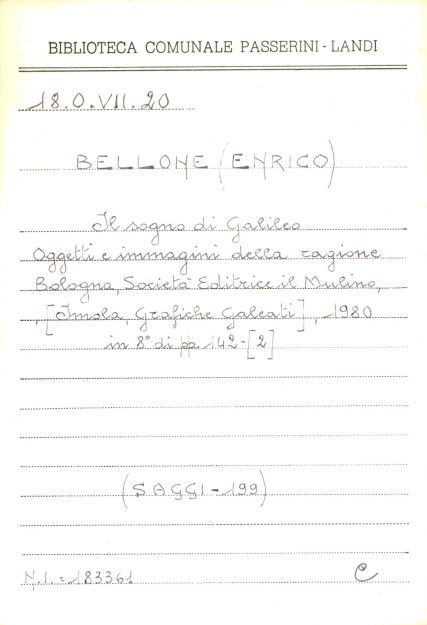 BIBLIOTECA COMUNALE PASSERINI-LANDI
18.O.VII.20
BELLONE (ENRICO)
Il sogno di Galileo
Oggetti e immagini della ragione
Bologna, Società Editrice il Mulino,
, [Imola, Grafiche Galeati], 1980
in 8° di pp. 142-[2]
(SAGGI-199)
N.I.=183361
C